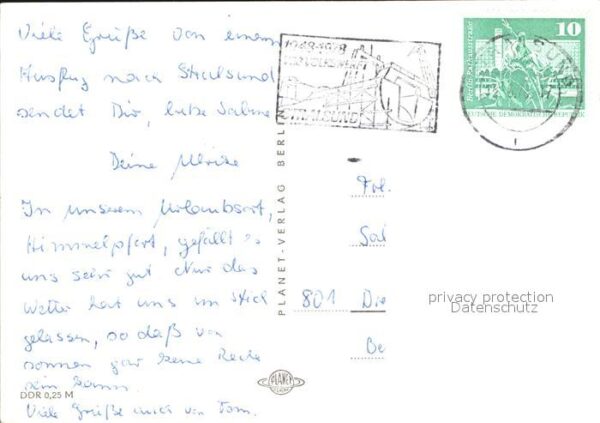 Viele Grüße von einem
Ausflug nach Stralsund
sendet Dir, liebe Sabine
Deine Ulrike
In unserem Urlaubsort,
Himmelpfort, gefällt es
uns sehr gut Nur das
Wetter hat uns im Stich
gelassen, so daß von
sonnen gar keine Rede
sein kann.
Viele Grüße auch von Tom.
DDR 0,25 M
PLANET-VERLAG BERLIN
PLANET
1948-1978
VOLKSWERFT
STRALSUND
10
Berlin, Rathausstrasse
DEUTSCHE DEMOKRATISCHE REPUBLIK
Frl.
Sal
801 Die
Be
privacy protection
Datenschutz